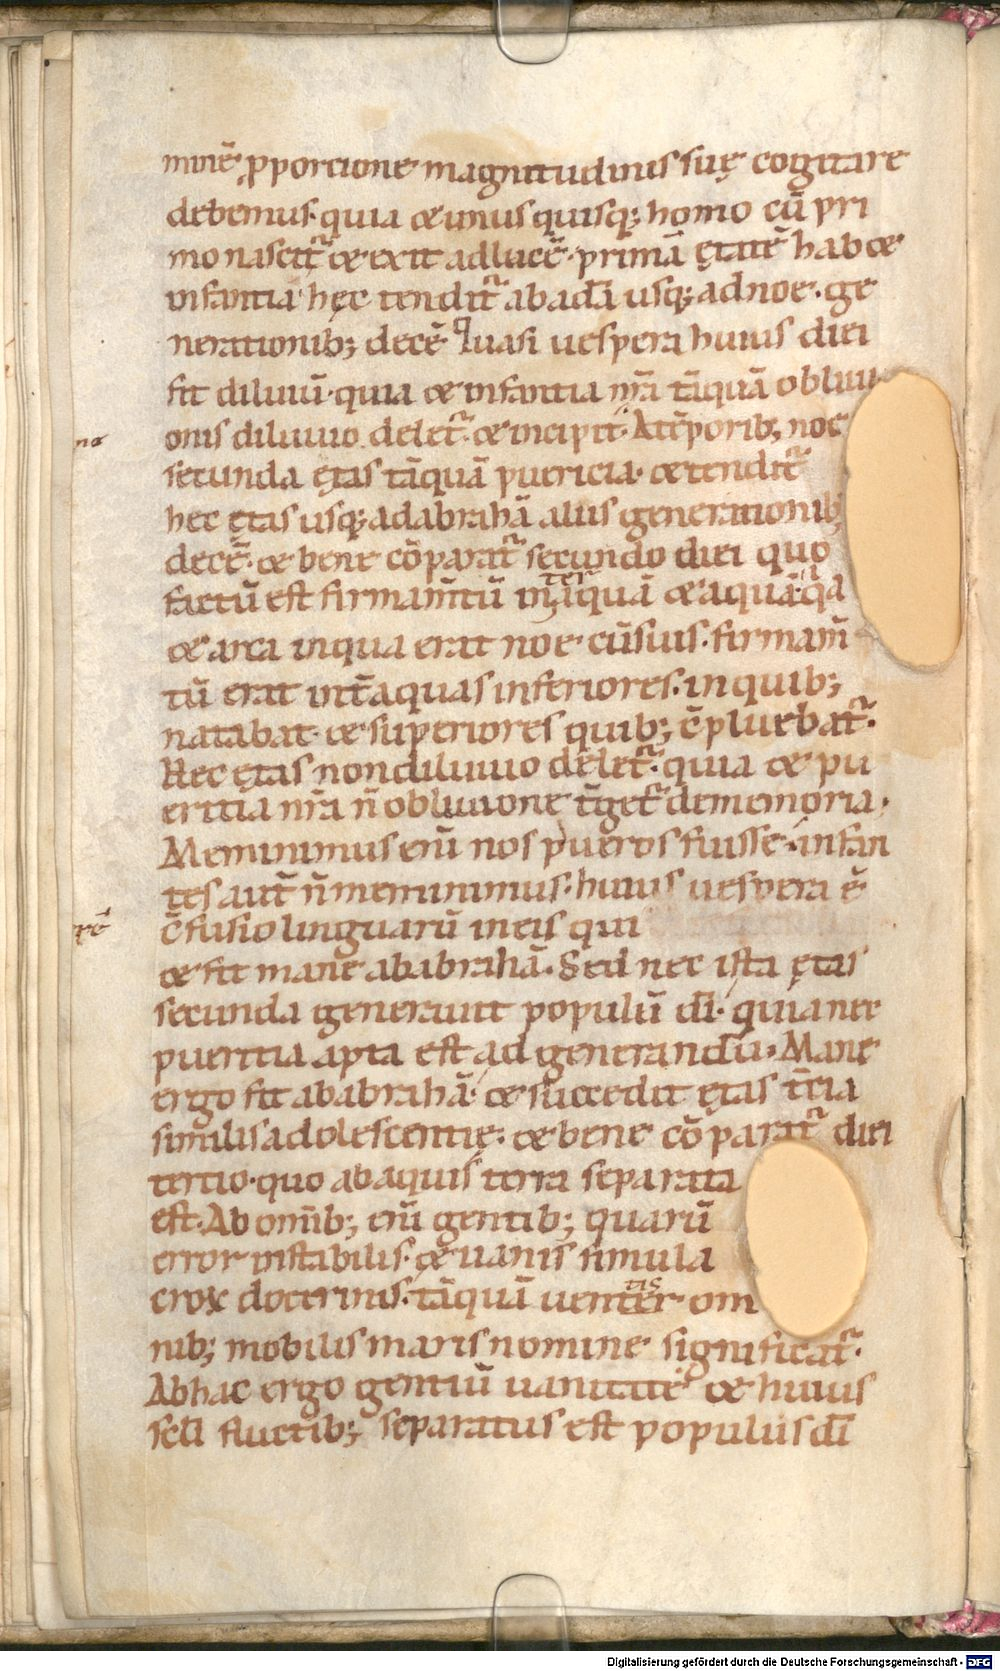 minē p̱porcione magnitudinis suę cogitare
debemus· quia & unus quisq; homo cū pri
mo nascit᷑ & exit adlucē· primā ętatē hab&
infantia hęc tendit᷑ abadā usq; adnoe· ge
nerationib; decē· Quasi uespera huius diei
fit diluuiū· quia & infantia nr̄a tāquā obliui
onis diluuio delet᷑· & incipit· Atēporib; noe
secunda ętas tāquā puericia· & tendit᷑
hec ętas usq; adabrahā aliis generationib;
decē· & bene cōparat᷑ secundo diei quo
factū est firmam̄tū int̄ aquā & aquā· qa
ter
& arca inqua erat noe cū suis· firmam̄
tū erat int̄ aquas inferiores· in quib;
natabat· & superiores quib; cōpluebat᷑·
Hec ętas non diluuio delet᷑· quia & pu
eritia nr̄a n̄ obliuione t̄get᷑ dememoria·
Meminimus enī nos pueros fuisse· infan
tes aut̄ n̄ meminimus· huius uespera ē
c̄fusio linguarū in eis qui
& fit mane ababrahā· Sed nec ista ętas
secunda generauit populū dī· quia nec
pueritia apta est ad generandū· Mane
ergo fit ababrahā· & succedit ętas t̄cia
similis adolescentię· & bene cōparat᷑ diei
tertio· quo abaquis terra separata
est· Ab omīb; enī gentib; quarū
error instabilis· & uanis simula
crox doctrinis· tāquā uenter om
tis
nib; mobilis maris nomine significat᷑·
Abhac ergo gentiū uanitatē & huius
scl̄i fluctib; separatus est populus dī
Digitalisierung gefördert durch die Deutsche Forschungsgemeinschaft - DFG